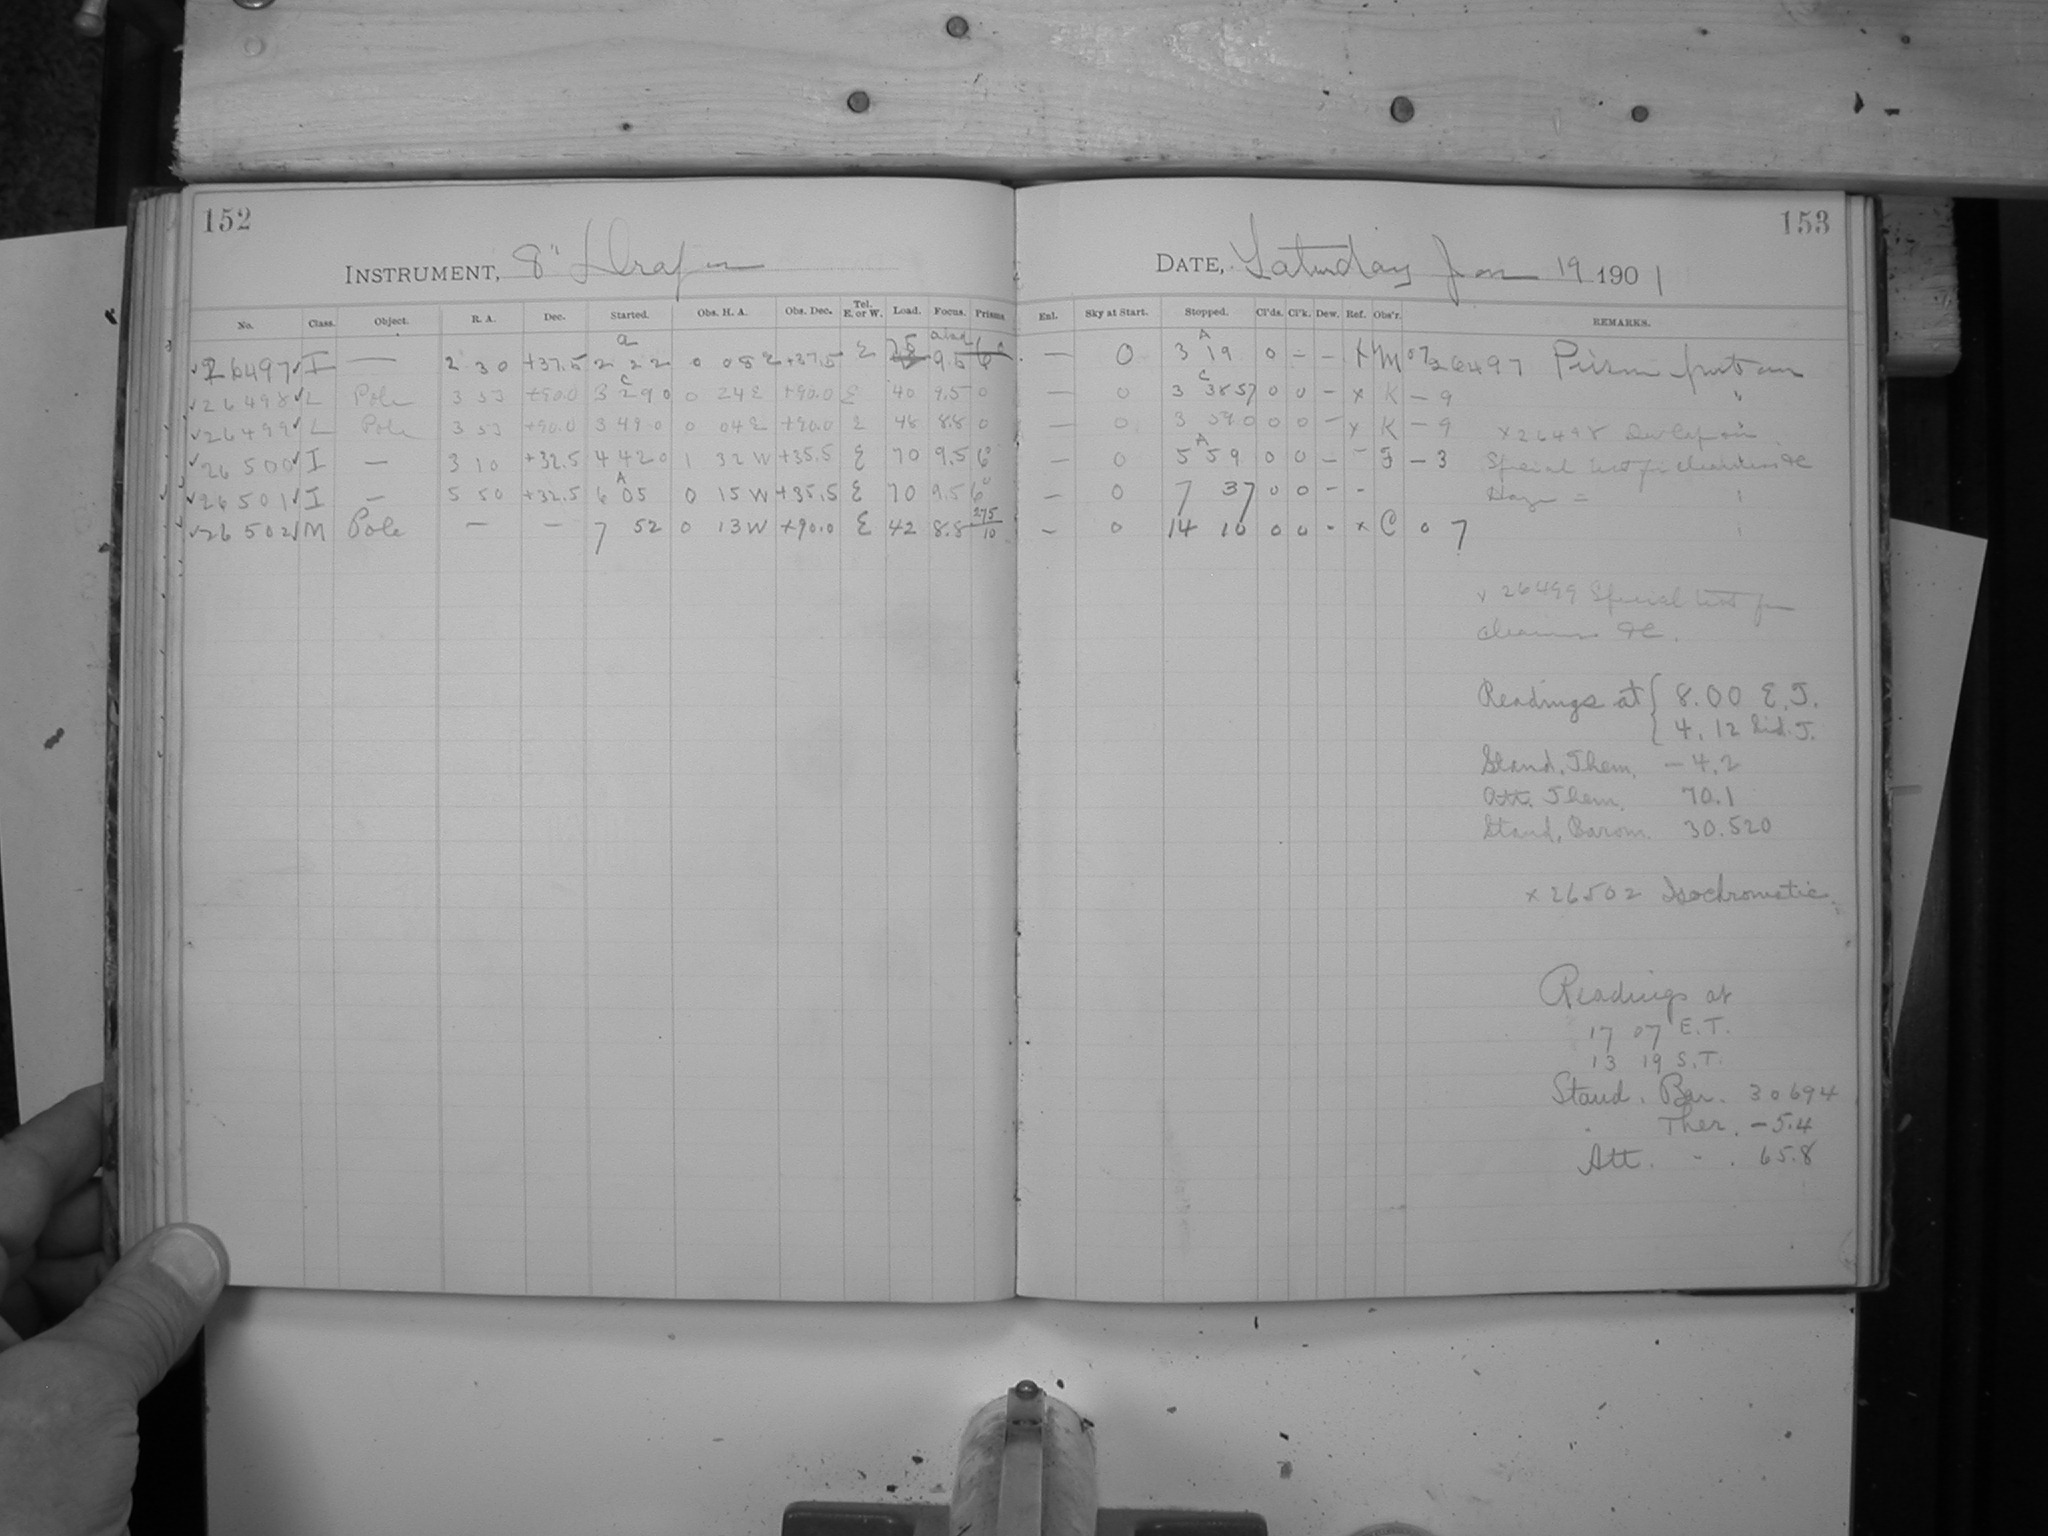 152
INSTRUMENT, 8" Draper
No. Class. Object. R. A. Dec. Started. Obs. H. A. Obs. Dec. Tel. E. or W. Load. Focus. Prisms
26497 I — 2 30 +37.5 2 22 0 08 E +37.5 E 9.5 6
26498 L Pole 3 53 +90.0 3 29 0 0 24 E +90.0 E 40 9.5 0
26499 L Pole 3 53 +90.0 3 49 0 0 04 E +90.0 E 48 8.8 0
26500 I — 3 10 +32.5 4 42 0 1 32 W +35.5 E 70 9.5 6
26501 I — 5 50 +32.5 6 05 0 15 W +35.5 E 70 9.5 6°
26502 M Pole — — 7 52 0 13 W +90.0 E 42 8.8 275/10
153
DATE, Saturday Jan 19 1901
Enl. Sky at Start. Stopped. Cl'ds. Cl'k. Dew. Ref. Obs'r. REMARKS.
— 0 3 19 0 – – x M 07 26497 Prism put on
— 0 3 38 57 0 0 – x K – 9 "
— 0 3 59 0 0 0 – x K – 9
x 26498
— 0 5 59 0 0 – – F – 3 Special test for
— 0 7 37 0 0 – –
— 0 14 10 0 0 – x C 0 7
x 26499 Special test for
clearness &c.
Readings at { 8.00 E. T.
{ 4.12 Sid. T.
Stand. Them. – 4.2
Att. Them. 70.1
Stand. Barom. 30.520
x 26502 Isochromatic
Readings at
17 07 E.T.
13 19 S.T.
Stand. Bar. 30694
Ther. – 5.4
Att. " . 65.8